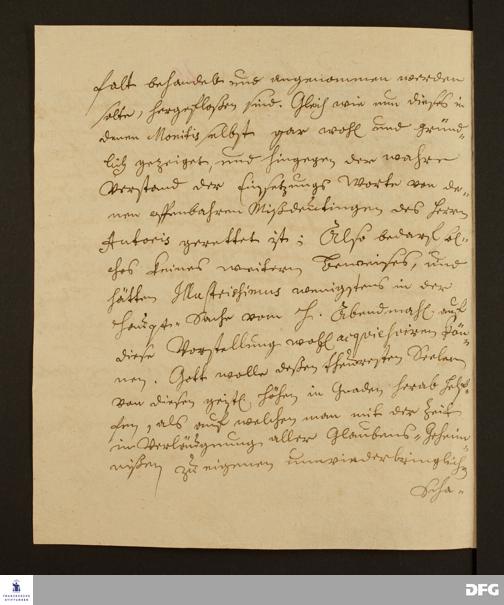 falt behandelt und angenommen werden
solte, hergefloßen sind. Gleich wie nun dieses in
denen Monitis selbst gar wohl und gründ-
lich gezeiget, und hingegen der wahre
Verstand der Einsetzungs Worte von de-
nen offenbahren Mißdeutungen des Herrn
Autoris gerettet ist; Also bedarf es sol-
ches keines weitern Beweises, und
hätten Illustrissimus wenigstens in der
Haupt-Sache vom H. Abendmahl auf
diese Vorstellung wohl acquiesciren kön-
nen. Gott wolle deßen theuresten Seelen
von diesen Höhen in Gnaden herab helf-
fen, als auf welchen man mit der Zeit
in Verläugnung aller Glaubens-Geheim-
nißen zu eigenen unwiederbringlich
Scha-
FRANCKESCHE
STIFTUNGEN
DFG